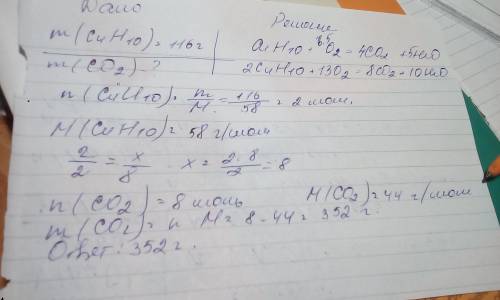 Дано
Решение
m(C4H10) = 116 г
C4H10 + 6,5O2 = 4CO2 + 5H2O
m(CO2) - ?
2C4H10 + 13O2 = 8CO2 + 10H2O
n(C4H10) = m/M = 116/58 = 2 моль.
M(C4H10) = 58 г/моль
2/2 = x/8 x = 2·8/2 = 8
n(CO2) = 8 моль M(CO2) = 44 г/моль
m(CO2) = n·M = 8·44 = 352 г.
Ответ: 352 г.